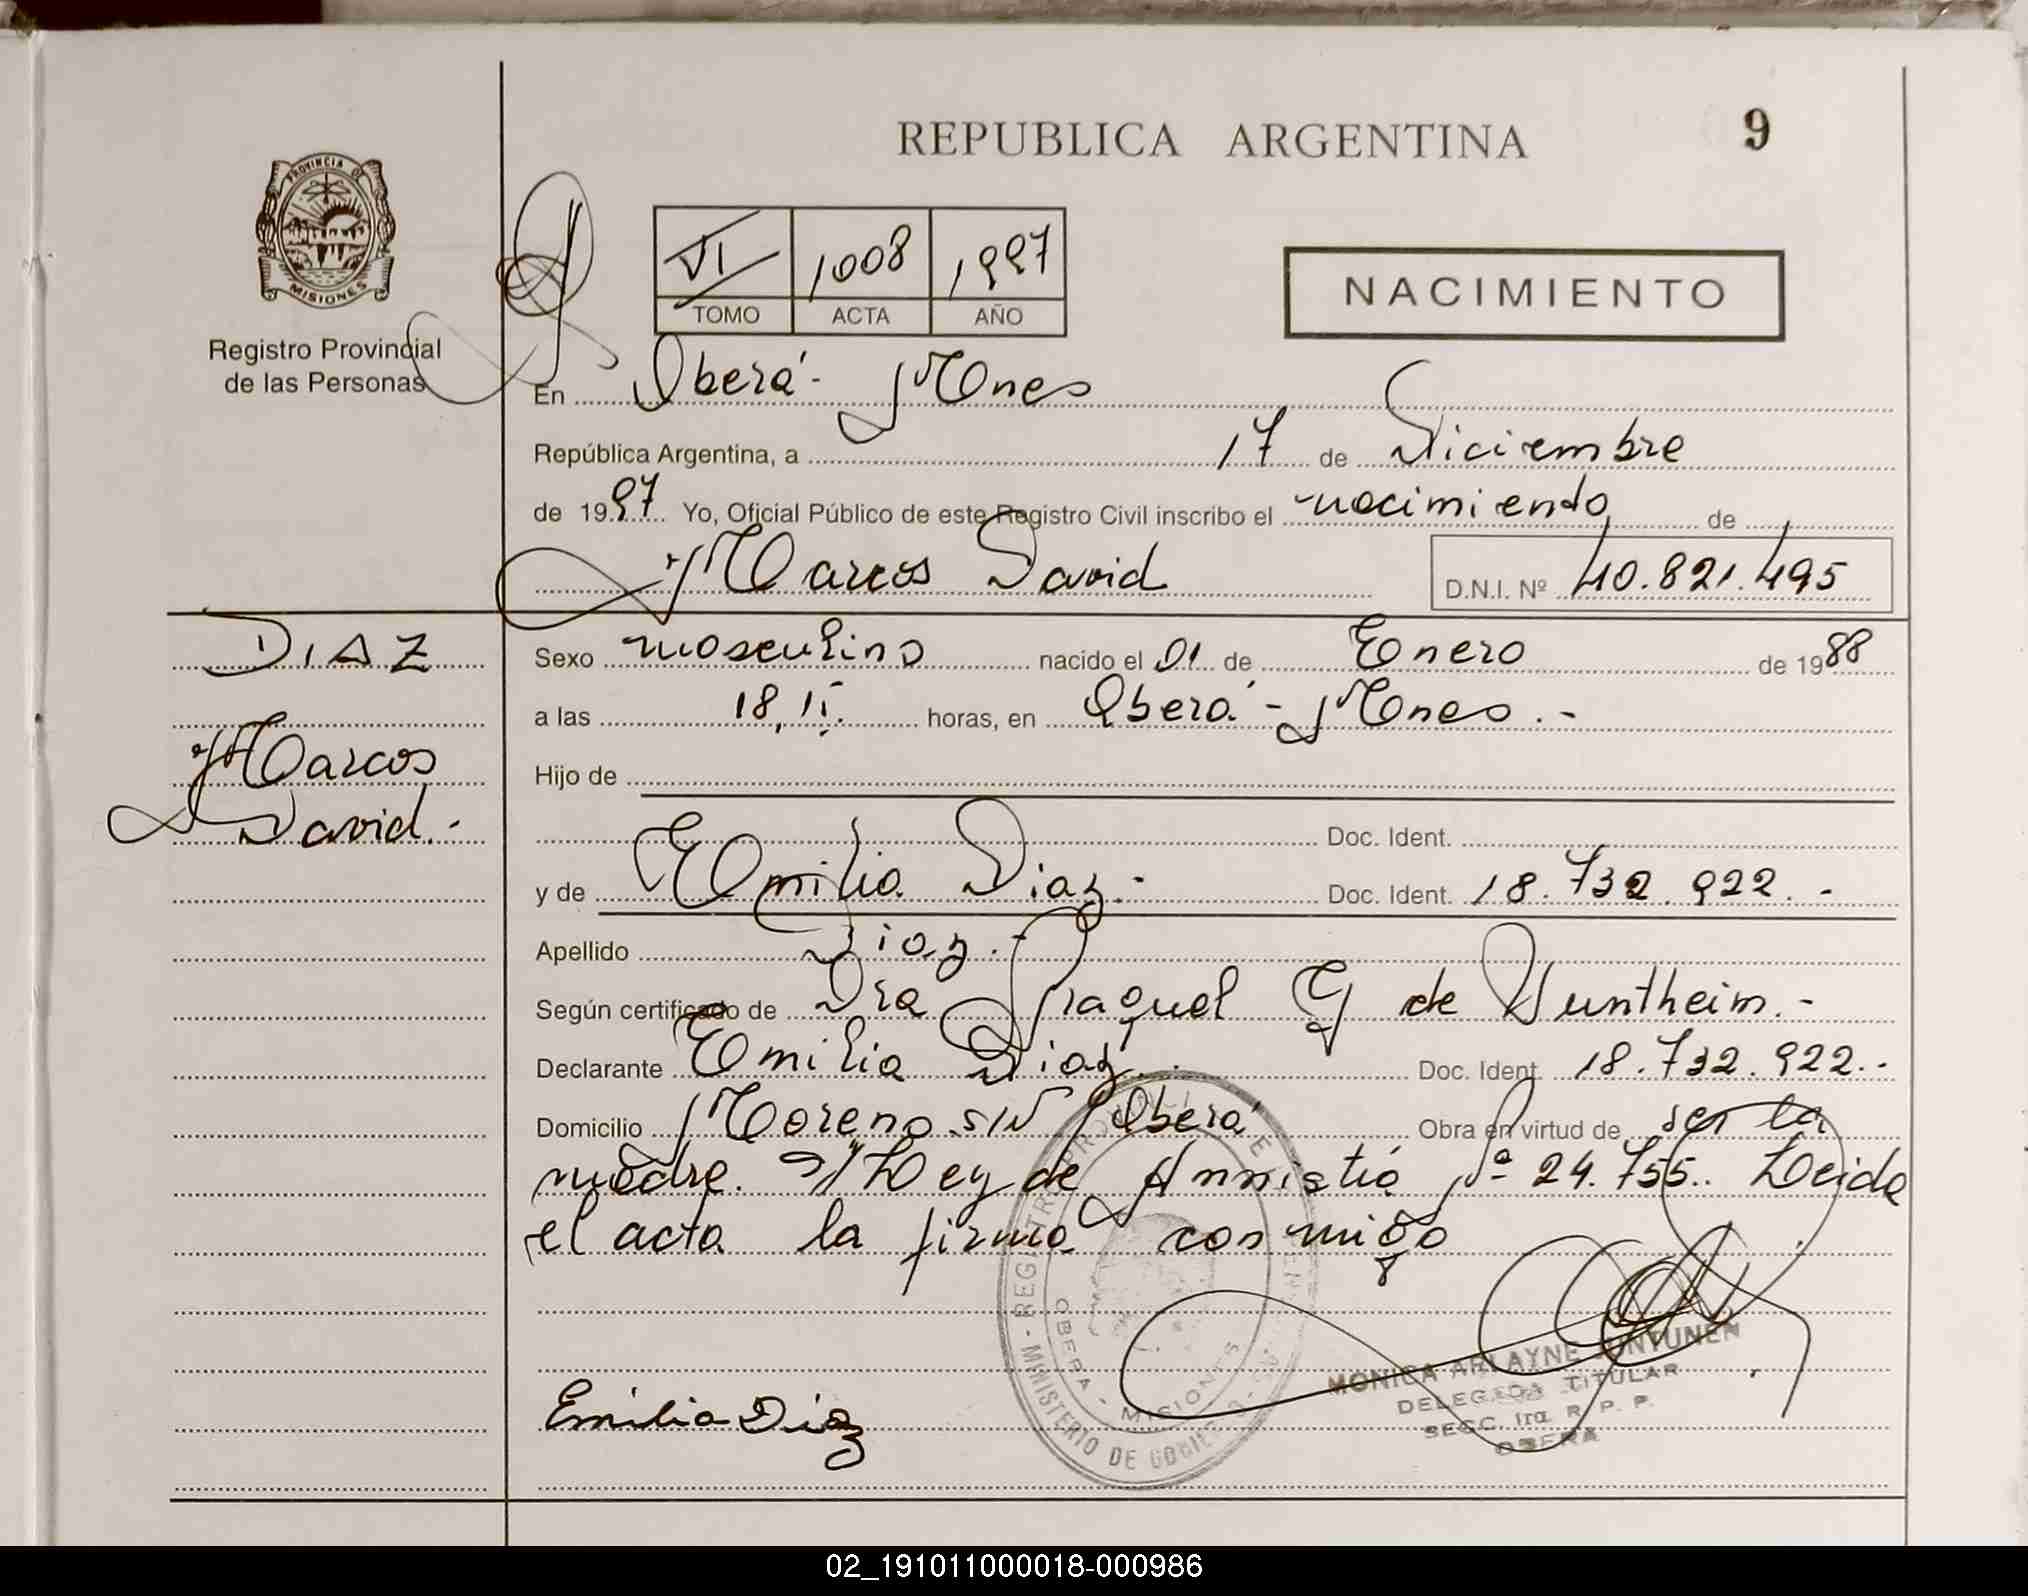 REPUBLICA ARGENTINA
9
PROVINCIA DE
MISIONES
Registro Provincial
de las Personas
VI 1008 1997
TOMO ACTA AÑO
NACIMIENTO
En Oberá - Mnes
República Argentina, a 17 de Diciembre
de 1997 Yo, Oficial Público de este Registro Civil inscribo el nacimiento de
Marcos David D.N.I. Nº 40.821.495
DIAZ
Marcos
David.-
Sexo masculino nacido el 01 de Enero de 1988
a las 18,15. horas, en Oberá - Mnes.-
Hijo de
Doc. Ident.
y de Emilia Diaz.- Doc. Ident. 18.732.922.-
Apellido Diaz.-
Según certificado de Dra Raquel G de Wuntheim.-
Declarante Emilia Diaz.- Doc. Ident. 18.732.922.-
Domicilio Moreno S/N Oberá Obra en virtud de ser la
madre. S/Ley de Amnistiá Nº 24.755.. Leida
el acta la firma conmigo
Emilia Diaz
REGISTRO PROVINCIAL DE
MINISTERIO DE GOBIERNO
OBERA - MISIONES
MONICA ARLAYNE JUNTUNEN
DELEGADA TITULAR
SECC. 1ra. R. P. P.
OBERA
02_191011000018-000986